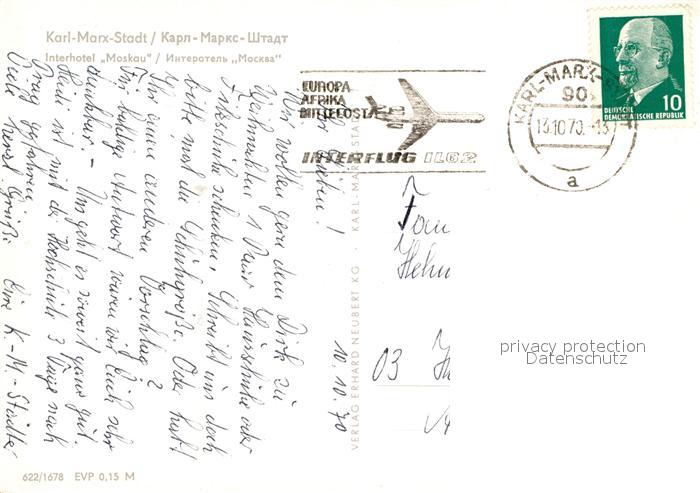 Karl-Marx-Stadt / Карл-Маркс-Штадт
Interhotel „Moskau" / Интеротель „Москва"
10.10.70
Ihr Lieben!
Wir wollen gern dem Dirk zu
Weihnachten 1 Paar Hausschuhe oder
schenken. Schreibt uns doch
bitte mal die Schuhgröße. Oder habt
Ihr einen anderen Vorschlag?
Für baldige Antwort wären wir Euch sehr
dankbar. – Uns geht es soweit ganz gut.
Heini ist mit der Hochschule 3 Tage nach
Prag gefahren.
Viele herzl. Grüße Eure K.-M.-Städter
622/1678 EVP 0,15 M
VERLAG ERHARD NEUBERT KG · KARL-MARX-STA
EUROPA
AFRIKA
MITTELOST
INTERFLUG IL62
KARL-MARX-S
90
13.10.70.-13
a
10
DEUTSCHE
DEMOKRATISCHE REPUBLIK
Fam
Helm
03
privacy protection
Datenschutz